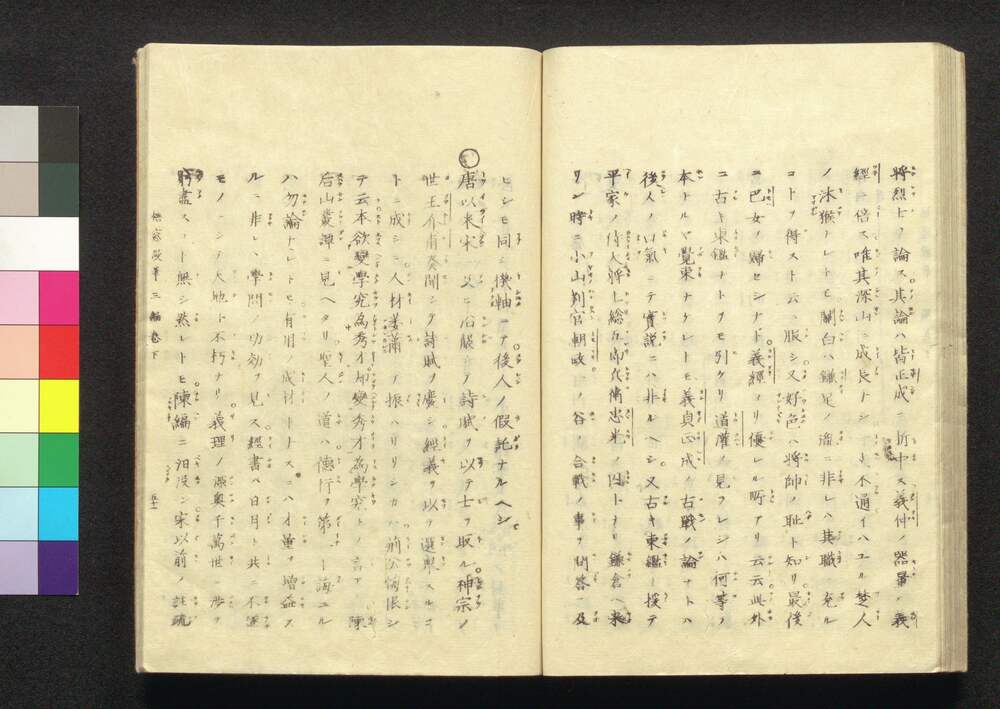 將烈士ノ論ス其論ハ皆正成ニ折中ス義仲ノ器量ハ義
經ニ倍ス唯其深山ニ成長トシテ不通イハユル楚人
ノ沐猴ナレトモ關白ハ鎌足ノ裔ニ非レハ其職ニ充ル
コトヲ得スト云ニ服シ又好色ハ將帥ノ恥ト知リ最後
ニ巴女ヲ歸セシナド義經ヨリ優レル所アリ云云此外
ニ古キ東鑑トテモ引ケリ道灌ノ見ラレシハ何等ノ
本トルヤ覺束ナケレトモ義貞正成ノ古戰ノ論ナトハ
後人ノ口氣ニテ實説ニハ非ルヘシ又古キ東鑑ヲ援テ
平家ノ侍人上総五郎兵衞忠光ノ囚トナリ鎌倉ヘ來
リシ時小山判官朝政一ノ谷ノ合戰ノ事ヲ問答ニ及
ヒシモ同シ機軸ニテ後人ノ假託ナルヘシ
唐以来宋ニ至ニ詩賦ヲ以テ士ヲ取ル神宗ノ
世王介甫奏聞シテ詩賦ヲ廢シ經義ヲ以テ選擧スルコ
トニ成シニ人材萋滿ヲ振ハサリシカハ荊公悔恨シ
テ云本欲變學究為秀才却變秀才為學究トノ言アリ陳
后山叢譚ニ見ヘタリ聖人ノ道ハ德行ヲ第一ト誨ユル
ハ勿論ナレトモ有用ノ成材トナスニハ才量ヲ増益ス
ルニ非レハ學問ノ功効ヲ見ス經書ハ日月ト共ニ不運
モノニシテ天地ト不朽ナリ義理ノ淵奥千萬世ニ渉テ
窮盡スヘキ無シ然レトモ陳編ニ汨没シ宋以前ノ註疏
三編巻下